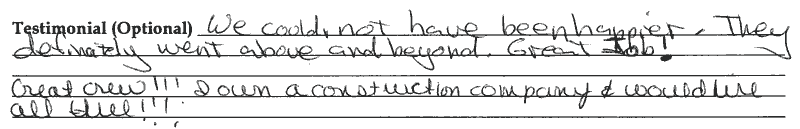 Testimonial (Optional) We could not have been happier. They
definately went above and beyond. Great Job!
Great crew!!! I own a construction company & would hire
all three!!!